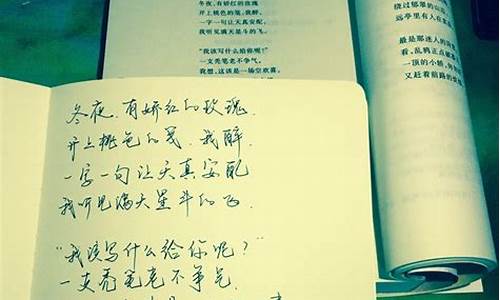 冬夜,有娇红的玫瑰
开上桃色的笺,我醉,
一字一句让天真安配
我听见满天星斗的飞
“我该写什么给你呢?”
一支秃笔老不争气,
冬夜,有娇红的玫瑰
开上桃色的笺,我醉,
一字一句让天真安配,
我听见满天星斗的飞。
“我该写什么给你呢?”
一支秃笔老不争气,
我想,这该是一场空欢喜,
绕过郁翠的山
远亭里有人在
最是那迷人的
看,乱鸦正点
一顶的小轿,
又赶着前路的